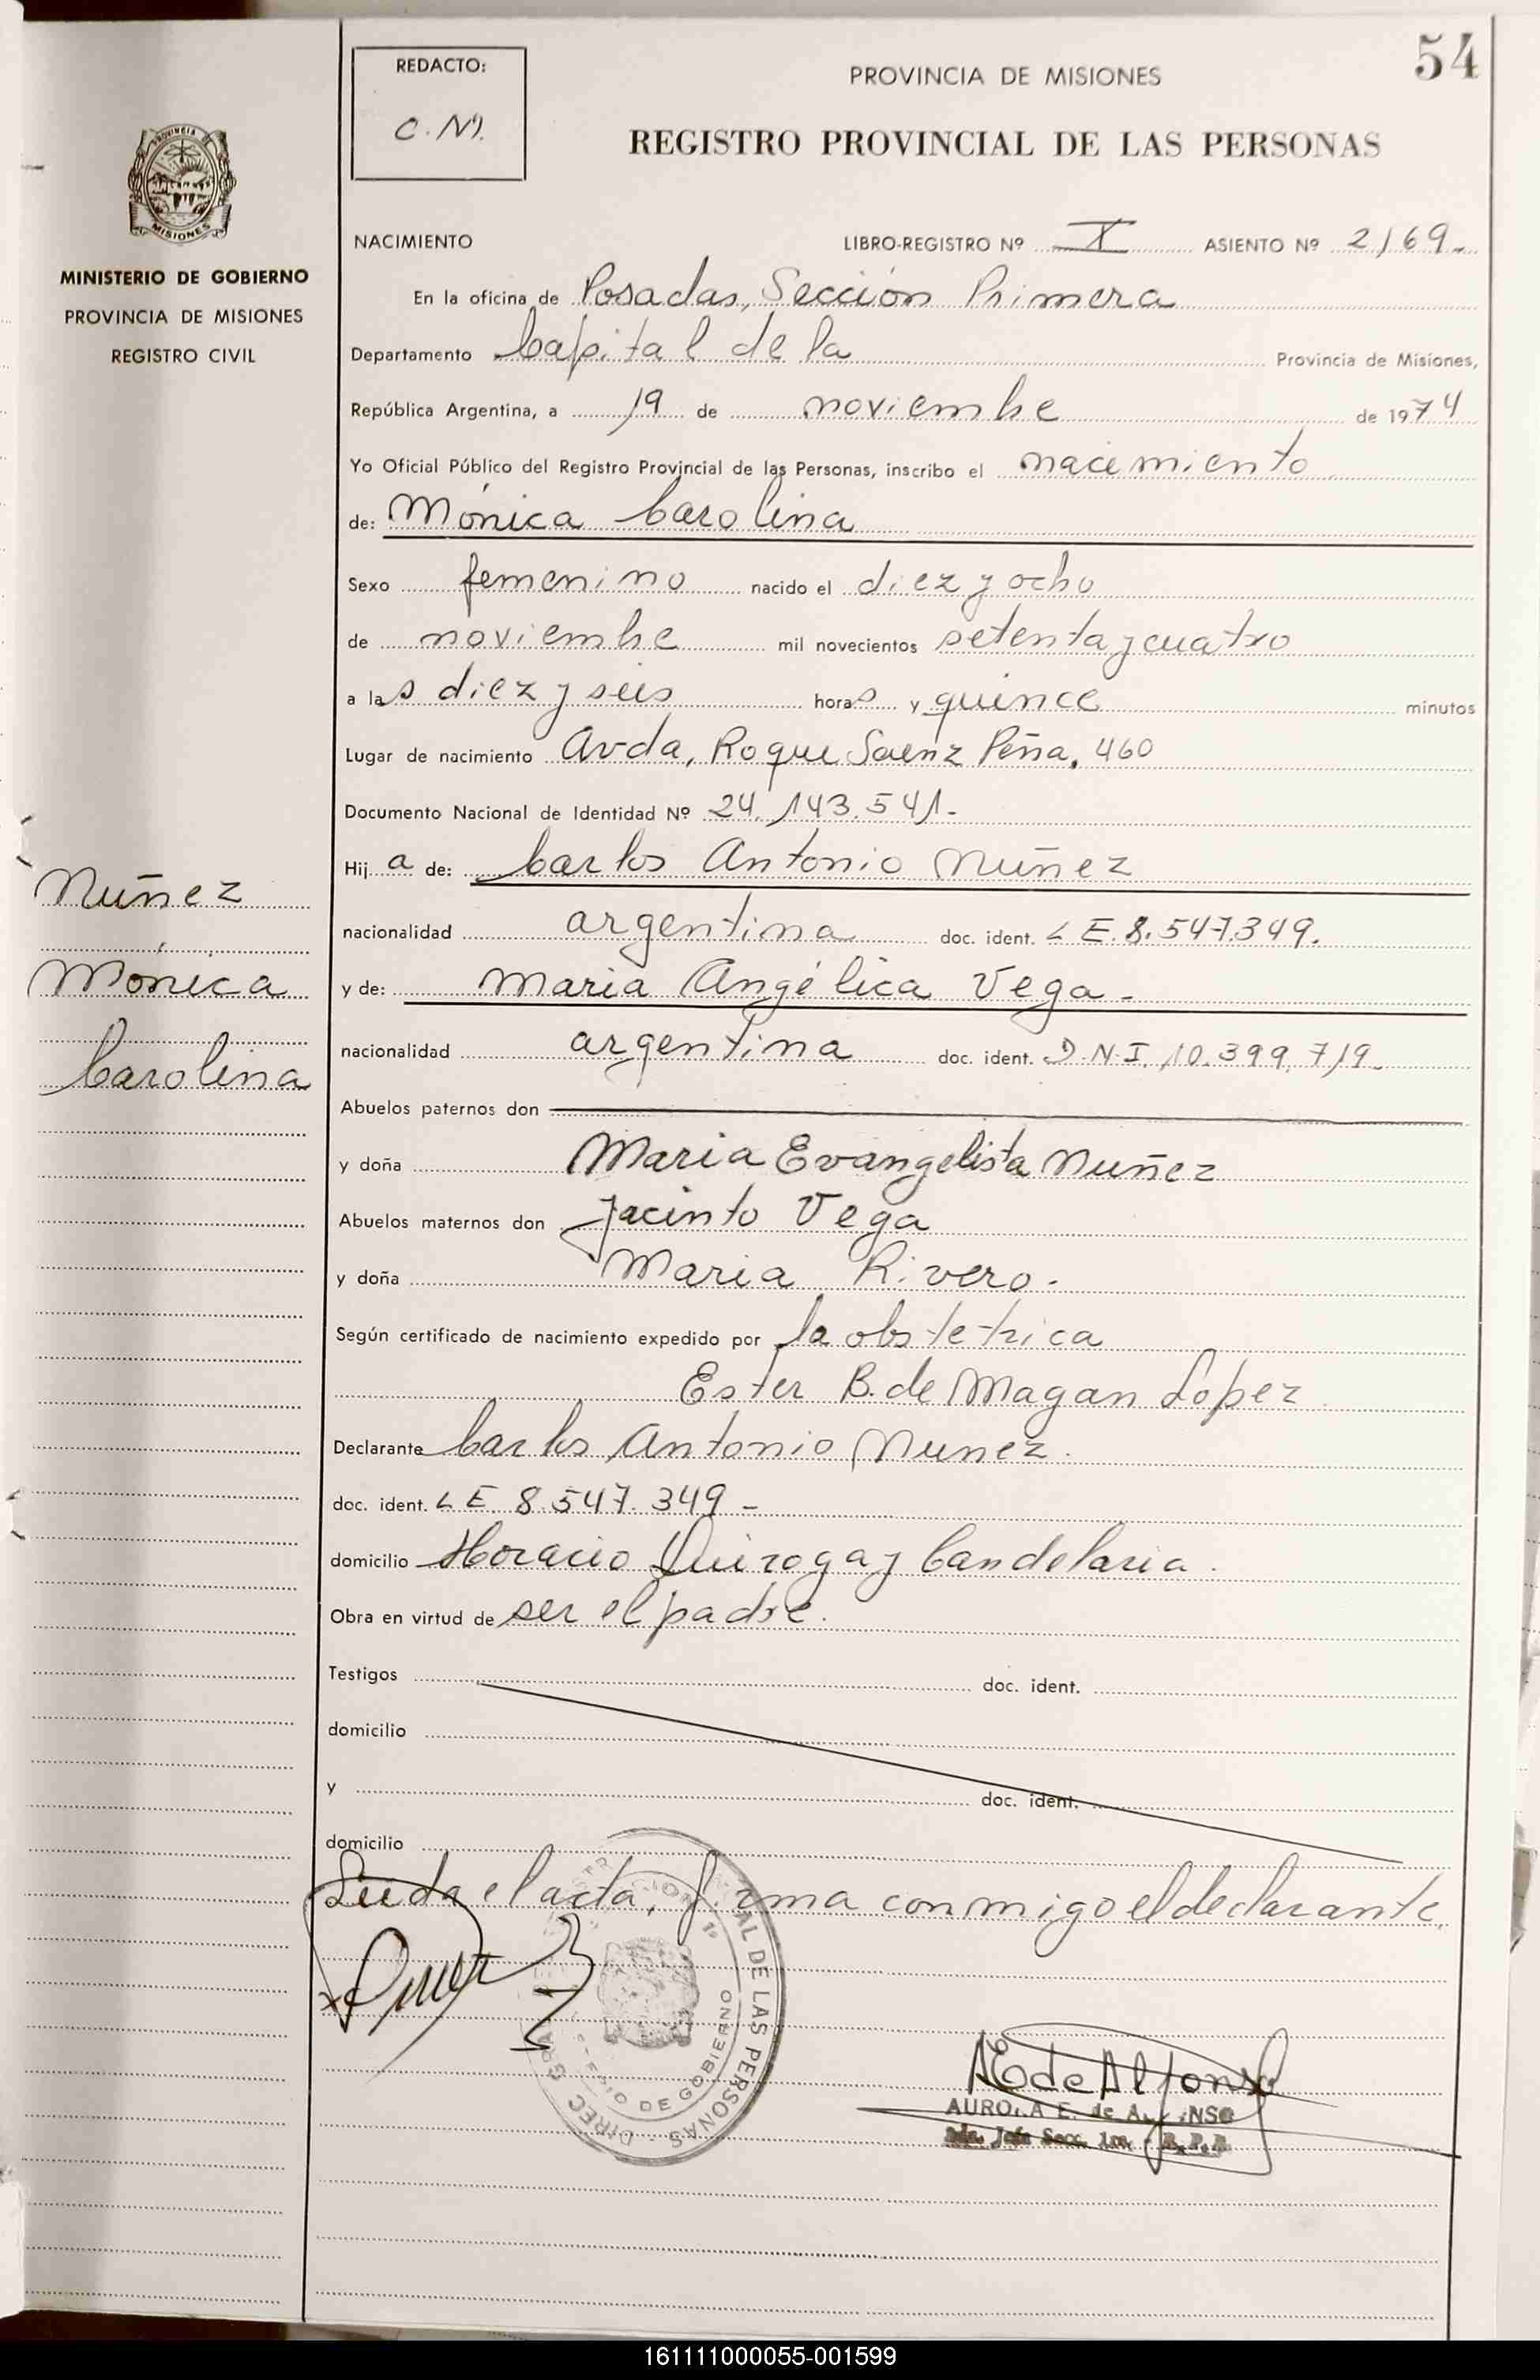 54
REDACTO:
C. N.
PROVINCIA DE MISIONES
REGISTRO PROVINCIAL DE LAS PERSONAS
PROVINCIA
MISIONES
MINISTERIO DE GOBIERNO
PROVINCIA DE MISIONES
REGISTRO CIVIL
NACIMIENTO LIBRO-REGISTRO Nº X ASIENTO Nº 2169-
En la oficina de Posadas, Sección Primera
Departamento Capital de la Provincia de Misiones,
República Argentina, a 19 de noviembre de 1974
Yo Oficial Público del Registro Provincial de las Personas, inscribo el nacimiento
de: Mónica Carolina
Sexo femenino nacido el diez y ocho
de noviembre mil novecientos setenta y cuatro
a las diez y seis horas y quince minutos
Lugar de nacimiento Avda, Roque Saenz Peña, 460
Documento Nacional de Identidad Nº 24.143.541-
Hija de: Carlos Antonio Nuñez
nacionalidad argentina doc. ident. L E. 8.547.349.
y de: Maria Angélica Vega-
nacionalidad argentina doc. ident. D.N.I. 10.399.719-
Nuñez
Mónica
Carolina
Abuelos paternos don
y doña Maria Evangelista Nuñez
Abuelos maternos don Jacinto Vega
y doña Maria Rivero-
Según certificado de nacimiento expedido por la obstetrica
Ester B. de Magan Lopez
Declarante Carlos Antonio Nunez.
doc. ident. L E 8.547.349-
domicilio Horacio Quiroga y Candelaria.
Obra en virtud de ser el padre.
Testigos doc. ident.
domicilio
y doc. ident.
domicilio
Leida el acta, firma conmigo el declarante.
AL DE LAS PERSONAS - DIREC
DE GOBIERNO
E de Alfonso
E. de
161111000055-001599